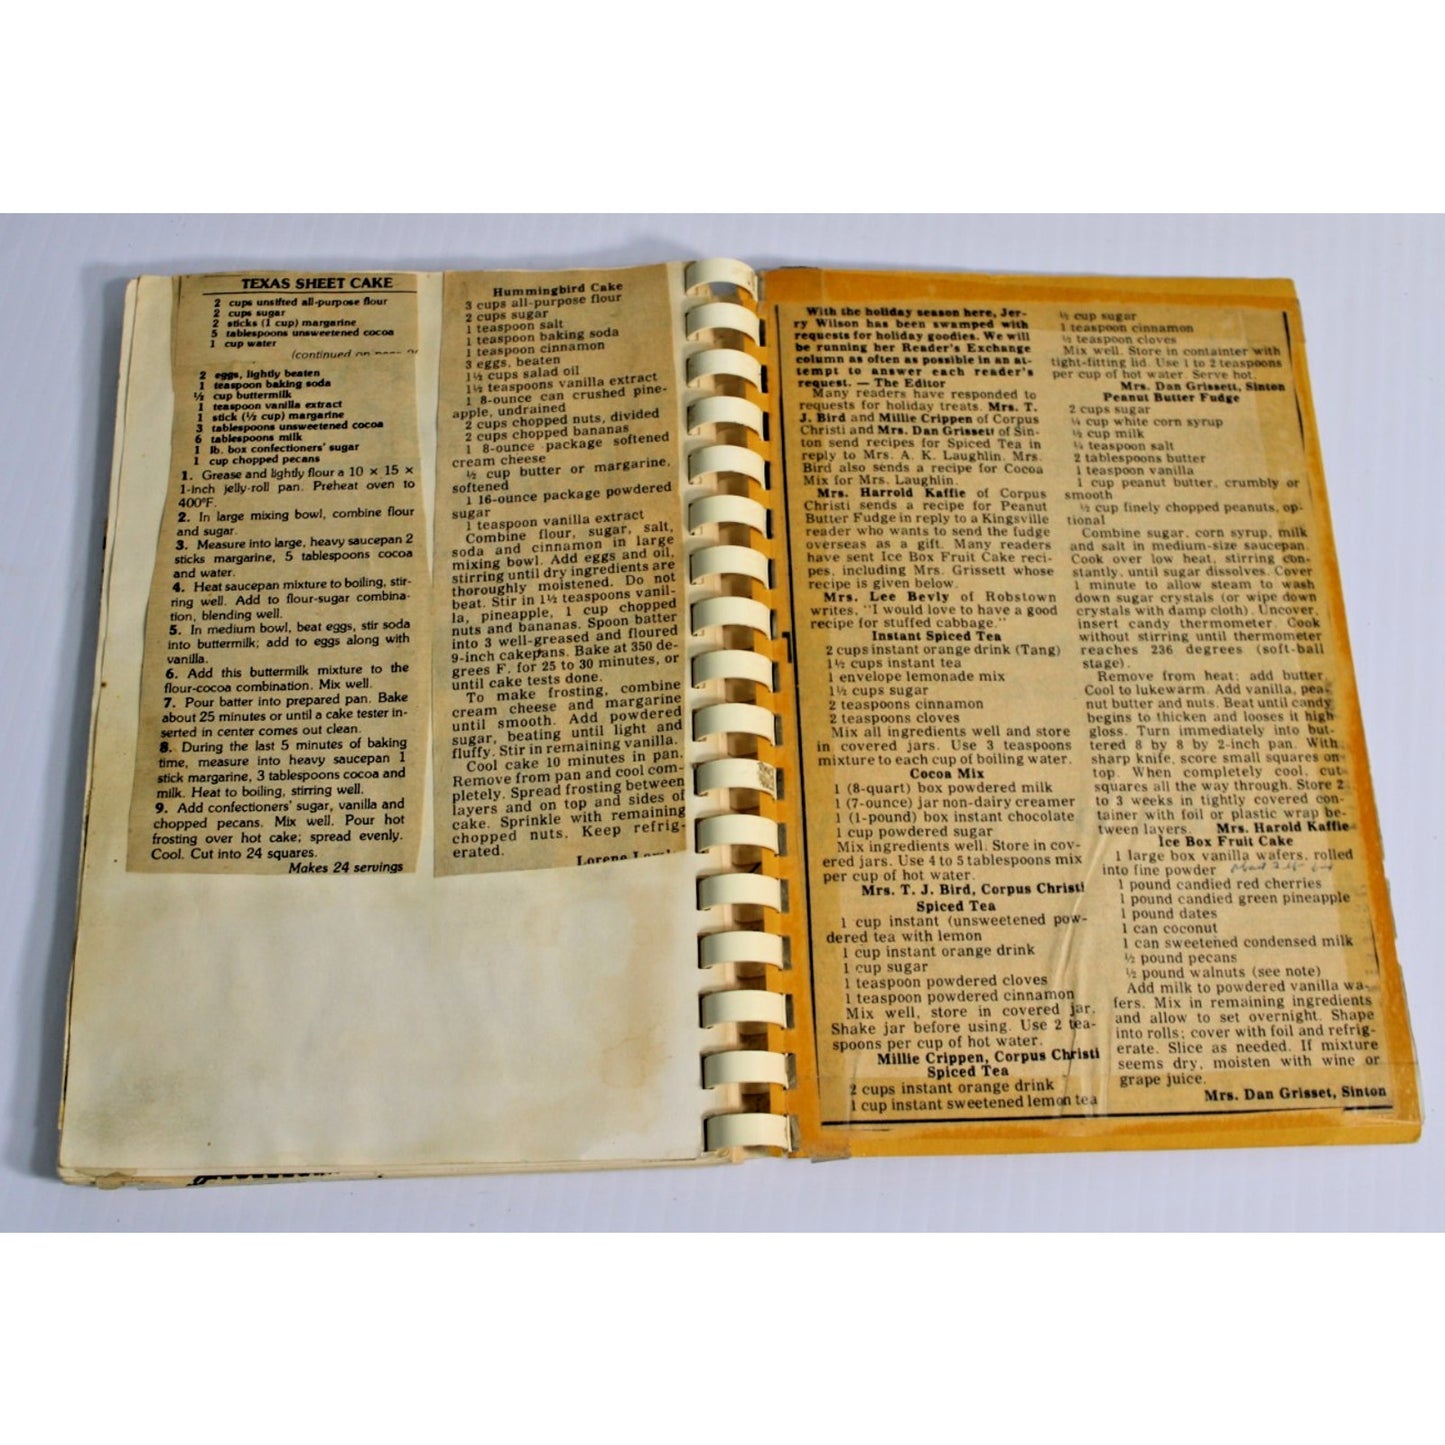 TEXAS SHEET CAKE
2 cups unsifted all-purpose flour
2 cups sugar
2 sticks (1 cup) margarine
5 tablespoons unsweetened cocoa
1 cup water
(continued on
2 eggs, lightly beaten
1 teaspoon baking soda
½ cup buttermilk
1 teaspoon vanilla extract
1 stick (½ cup) margarine
3 tablespoons unsweetened cocoa
6 tablespoons milk
1 lb. box confectioners' sugar
1 cup chopped pecans
1. Grease and lightly flour a 10 × 15 ×
1-inch jelly-roll pan. Preheat oven to
400°F.
2. In large mixing bowl, combine flour
and sugar.
3. Measure into large, heavy saucepan 2
sticks margarine, 5 tablespoons cocoa
and water.
4. Heat saucepan mixture to boiling, stir-
ring well. Add to flour-sugar combina-
tion, blending well.
5. In medium bowl, beat eggs, stir soda
into buttermilk; add to eggs along with
vanilla.
6. Add this buttermilk mixture to the
flour-cocoa combination. Mix well.
7. Pour batter into prepared pan. Bake
about 25 minutes or until a cake tester in-
serted in center comes out clean.
8. During the last 5 minutes of baking
time, measure into heavy saucepan 1
stick margarine, 3 tablespoons cocoa and
milk. Heat to boiling, stirring well.
9. Add confectioners' sugar, vanilla and
chopped pecans. Mix well. Pour hot
frosting over hot cake; spread evenly.
Cool. Cut into 24 squares.
Makes 24 servings
Hummingbird Cake
3 cups all-purpose flour
2 cups sugar
1 teaspoon salt
1 teaspoon baking soda
1 teaspoon cinnamon
3 eggs, beaten
1½ cups salad oil
1½ teaspoons vanilla extract
1 8-ounce can crushed pine-
apple, undrained
2 cups chopped nuts, divided
2 cups chopped bananas
1 8-ounce package softened
cream cheese
½ cup butter or margarine,
softened
1 16-ounce package powdered
sugar
1 teaspoon vanilla extract
Combine flour, sugar, salt,
soda and cinnamon in large
mixing bowl. Add eggs and oil,
stirring until dry ingredients are
thoroughly moistened. Do not
beat. Stir in 1½ teaspoons vanil-
la, pineapple, 1 cup chopped
nuts and bananas. Spoon batter
into 3 well-greased and floured
9-inch cakepans. Bake at 350 de-
grees F. for 25 to 30 minutes, or
until cake tests done.
To make frosting, combine
cream cheese and margarine
until smooth. Add powdered
sugar, beating until light and
fluffy. Stir in remaining vanilla.
Cool cake 10 minutes in pan.
Remove from pan and cool com-
pletely. Spread frosting between
layers and on top and sides of
cake. Sprinkle with remaining
chopped nuts. Keep refrig-
erated.
Lorene
With the holiday season here, Jer-
ry Wilson has been swamped with
requests for holiday goodies. We will
be running her Reader's Exchange
column as often as possible in an at-
tempt to answer each reader's
request. — The Editor
Many readers have responded to
requests for holiday treats. Mrs. T.
J. Bird and Millie Crippen of Corpus
Christi and Mrs. Dan Grissett of Sin-
ton send recipes for Spiced Tea in
reply to Mrs. A. K. Laughlin. Mrs.
Bird also sends a recipe for Cocoa
Mix for Mrs. Laughlin.
Mrs. Harrold Kaffie of Corpus
Christi sends a recipe for Peanut
Butter Fudge in reply to a Kingsville
reader who wants to send the fudge
overseas as a gift. Many readers
have sent Ice Box Fruit Cake reci-
pes, including Mrs. Grissett whose
recipe is given below.
Mrs. Lee Bevly of Robstown
writes, "I would love to have a good
recipe for stuffed cabbage."
Instant Spiced Tea
2 cups instant orange drink (Tang)
1½ cups instant tea
1 envelope lemonade mix
1½ cups sugar
2 teaspoons cinnamon
2 teaspoons cloves
Mix all ingredients well and store
in covered jars. Use 3 teaspoons
mixture to each cup of boiling water.
Cocoa Mix
1 (8-quart) box powdered milk
1 (7-ounce) jar non-dairy creamer
1 (1-pound) box instant chocolate
1 cup powdered sugar
Mix ingredients well. Store in cov-
ered jars. Use 4 to 5 tablespoons mix
per cup of hot water.
Mrs. T. J. Bird, Corpus Christi
Spiced Tea
1 cup instant (unsweetened pow-
dered tea with lemon
1 cup instant orange drink
1 cup sugar
1 teaspoon powdered cloves
1 teaspoon powdered cinnamon
Mix well, store in covered jar.
Shake jar before using. Use 2 tea-
spoons per cup of hot water.
Millie Crippen, Corpus Christi
Spiced Tea
2 cups instant orange drink
1 cup instant sweetened lemon tea
½ cup sugar
1 teaspoon cinnamon
½ teaspoon cloves
Mix well. Store in containter with
tight-fitting lid. Use 1 to 2 teaspoons
per cup of hot water. Serve hot.
Mrs. Dan Grissett, Sinton
Peanut Butter Fudge
2 cups sugar
¼ cup white corn syrup
cup milk
¼ teaspoon salt
2 tablespoons butter
1 teaspoon vanilla
1 cup peanut butter, crumbly or
smooth
½ cup finely chopped peanuts, op-
tional
Combine sugar, corn syrup, milk
and salt in medium-size saucepan.
Cook over low heat, stirring con-
stantly, until sugar dissolves. Cover
1 minute to allow steam to wash
down sugar crystals (or wipe down
crystals with damp cloth). Uncover,
insert candy thermometer. Cook
without stirring until thermometer
reaches 236 degrees (soft-ball
stage).
Remove from heat; add butter.
Cool to lukewarm. Add vanilla, pea-
nut butter and nuts. Beat until candy
begins to thicken and looses it high
gloss. Turn immediately into but-
tered 8 by 8 by 2-inch pan. With
sharp knife, score small squares on
top. When completely cool, cut
squares all the way through. Store 2
to 3 weeks in tightly covered con-
tainer with foil or plastic wrap be-
tween layers. Mrs. Harold Kaffie
Ice Box Fruit Cake
1 large box vanilla wafers, rolled
into fine powder
1 pound candied red cherries
1 pound candied green pineapple
1 pound dates
1 can coconut
1 can sweetened condensed milk
½ pound pecans
½ pound walnuts (see note)
Add milk to powdered vanilla wa-
fers. Mix in remaining ingredients
and allow to set overnight. Shape
into rolls; cover with foil and refrig-
erate. Slice as needed. If mixture
seems dry, moisten with wine or
grape juice.
Mrs. Dan Grisset, Sinton